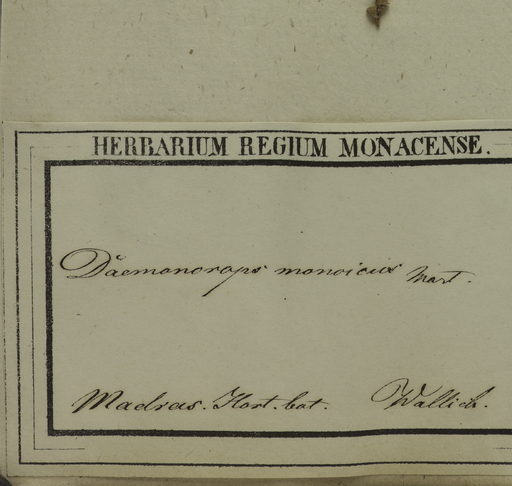 HERBARIUM REGIUM MONACENSE.
Daemonorops monoicus Mart.
Madras. Hort. bot. Wallich.